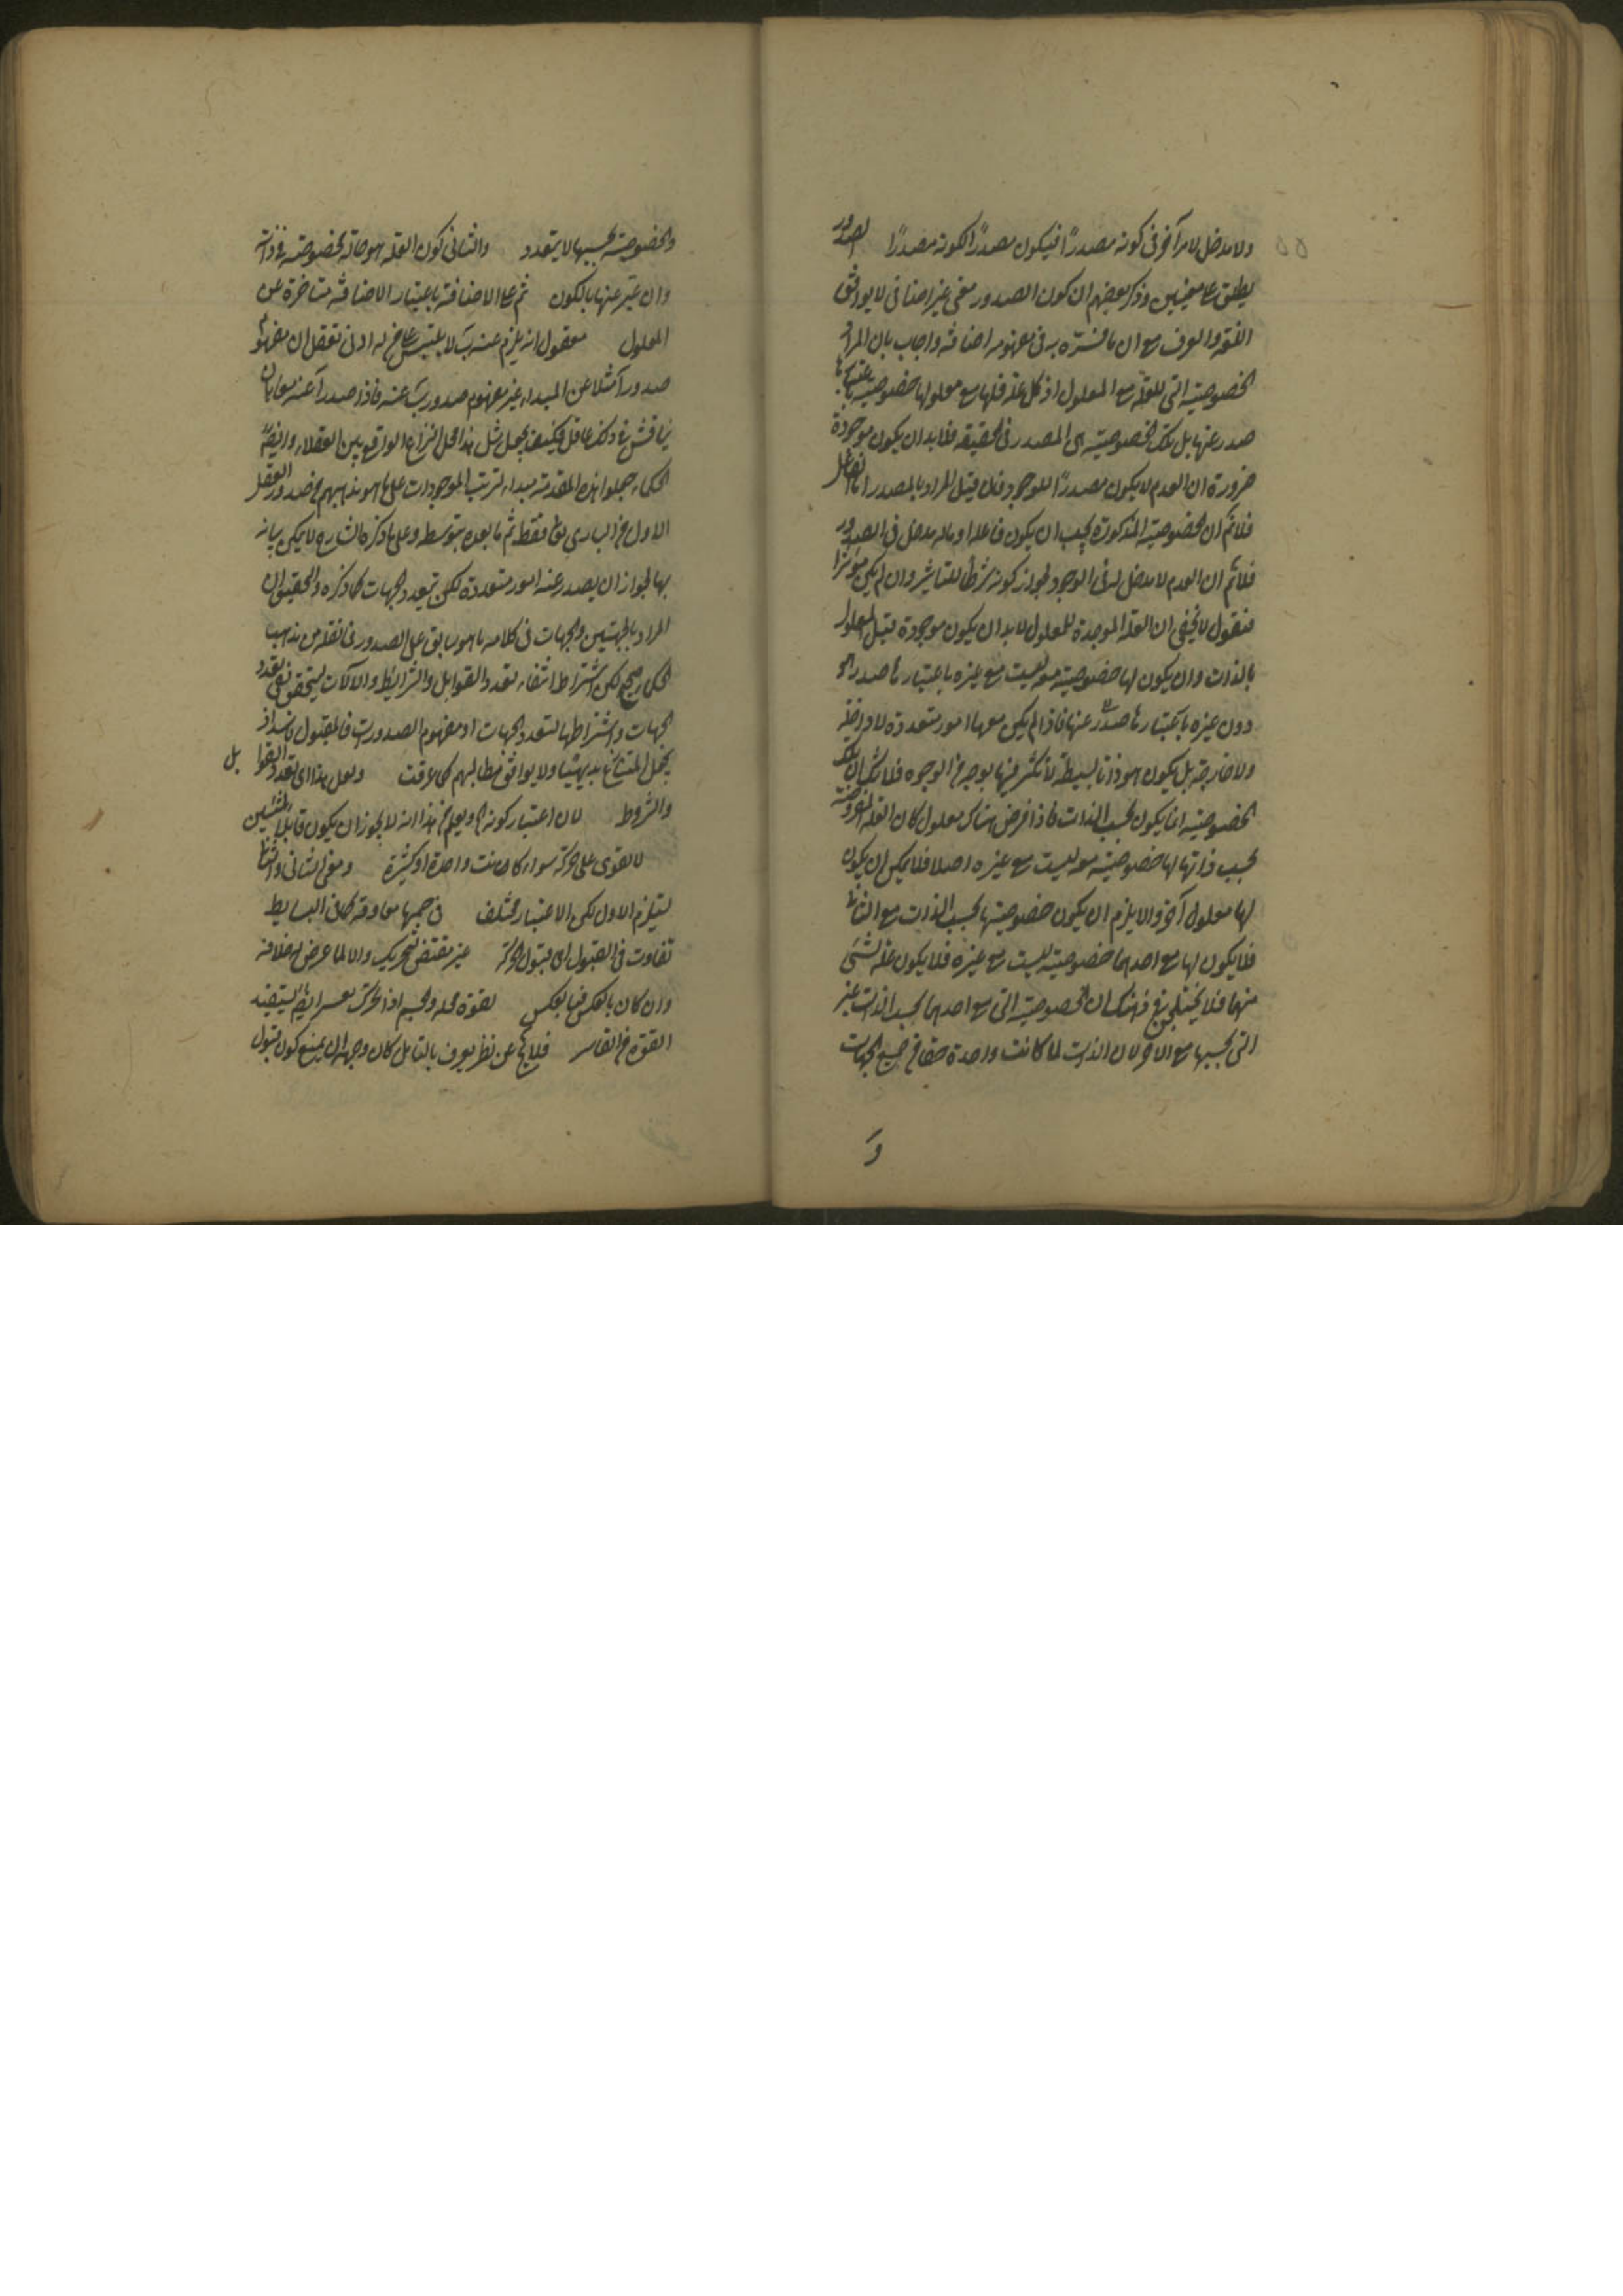 ولا مدخل لامر آخر فى كونه مصدرًا فيكون مصدرًا لكونه مصدرًا الصدور
يطلق على معنيين وذكر بعضهم ان كون الصدور معنى غير اضافى لا يوافق
اللغة والعرف مع ان ما فسّره به فى مفهومه اضافة واجاب بان المراد
الخصوصية التى للعلة مع المعلول اذ كل علة فلها مع معلولها خصوصية باعتبارها
صدر عنها بل تلك الخصوصية هى المصدر فى الحقيقة فلا بد ان يكون موجودة
ضرورة ان العدم لا يكون مصدرًا للوجود فان قيل المراد بالمصدر اما الفاعل
فلانم ان الخصوصية المذكورة يجب ان يكون فاعلا او ماله مدخل فى الصدور
فلانم ان العدم لا مدخل له فى الوجود لجواز كونه شرطا للتاثير وان لم يكن موثرا
فنقول لا يخفى ان العلة الموجدة للمعلول لا بد ان يكون موجودة قبل المعلول
بالذات وان يكون لها خصوصية معه ليست مع غيره باعتبارها صدر
دون غيره باعتبارها صدر عنها فاذا لم يكن معها امور متعددة لا داخلة
ولا خارجة بل يكون هو ذاتا بسيطة لا تكثر فيها بوجه من الوجوه فلا شك ان تلك
الخصوصية انما يكون بحسب الذات فاذا فرض هناك معلول كان العلة المفروضة
بحسب ذاتها لها خصوصية معه ليست مع غيره اصلا فلا يمكن ان يكون
لها معلول آخر والا يلزم ان يكون خصوصيتها بحسب الذات مع الثانى
فلا يكون لها مع احدهما خصوصية ليست مع غيره فلا يكون علة لشئ
منهما فلا يختلج فى ذهنك ان الخصوصية التى مع احدهما بحسب الذات غير
التى بحسبها مع الاخر لان الذات لما كانت واحدة حقا من جميع الجهات
و
والخصوصية بحسبها لا يتعدد والثانى كون العلة هو حالة بخصوصية فى ذاته
وان عبر عنها بالكون ثم على الاضافة باعتبار الاضافة متاخرة عن
المعلول معقول انه يلزم عنه ب لا يلتبس على من له ادنى تعقل ان مفهوم
صدور آ مثلا عن المبداء غير مفهوم صدور ب عنه فاذا صدر آ عنه
يناقش فى ذلك عاقل فكيف يجعل مثل هذا محل النزاع الواقع بين العقلاء وايضا
الحكماء جعلوا هذه المقدمة مبداء لترتب الموجودات على ما هو مذهبهم من صدور العقل
الاول من البارى تع فقط ثم ما بعده بتوسطه وعلى ما ذكره الشارح لا يمكن بيانه
بها لجواز ان يصدر عنه امور متعددة لكن بتعدد الجهات كما ذكره والتحقيق ان
المراد بالجهتين والجهات فى كلامه ما هو سابق على الصدور فى نقله من مذهب
الحكماء صحيح لكن اشتراط انتفاء تعدد القوابل والشرايط والالات ليتحقق نفى تعدد
الجهات واشتراطها لتعدد الجهات او مفهوم الصدورات فالمقبول فاسد اذ
يجعل المتنازع بديهيا ولا يوافق مطالبهم كما عرفت ولعل هذا اى تعدد القوابل
والشروط لان اعتبار كونه الخ ويعلم من هذا انه لا يجوز ان يكون قابلا لشيئين
لا تقوى على حركة سواء كانت واحدة او كثيرة ومعنى الثانى
يستلزم الاول لكن الاعتبار مختلف فى جسمها معاوقة كما فى البسايط
تفاوت فى القبول اى قبول الحركة غير مقتضى لتحريك والا لما عرض له خلافه
وان كان بالعكس فبالعكس لقوة محله والجسم اذا تحرك بقسر ايضا يستفيد
القوة من القاسر فلا يخ عن نظر يعرف بالتامل كان وجهه ان يمنع كون قبول